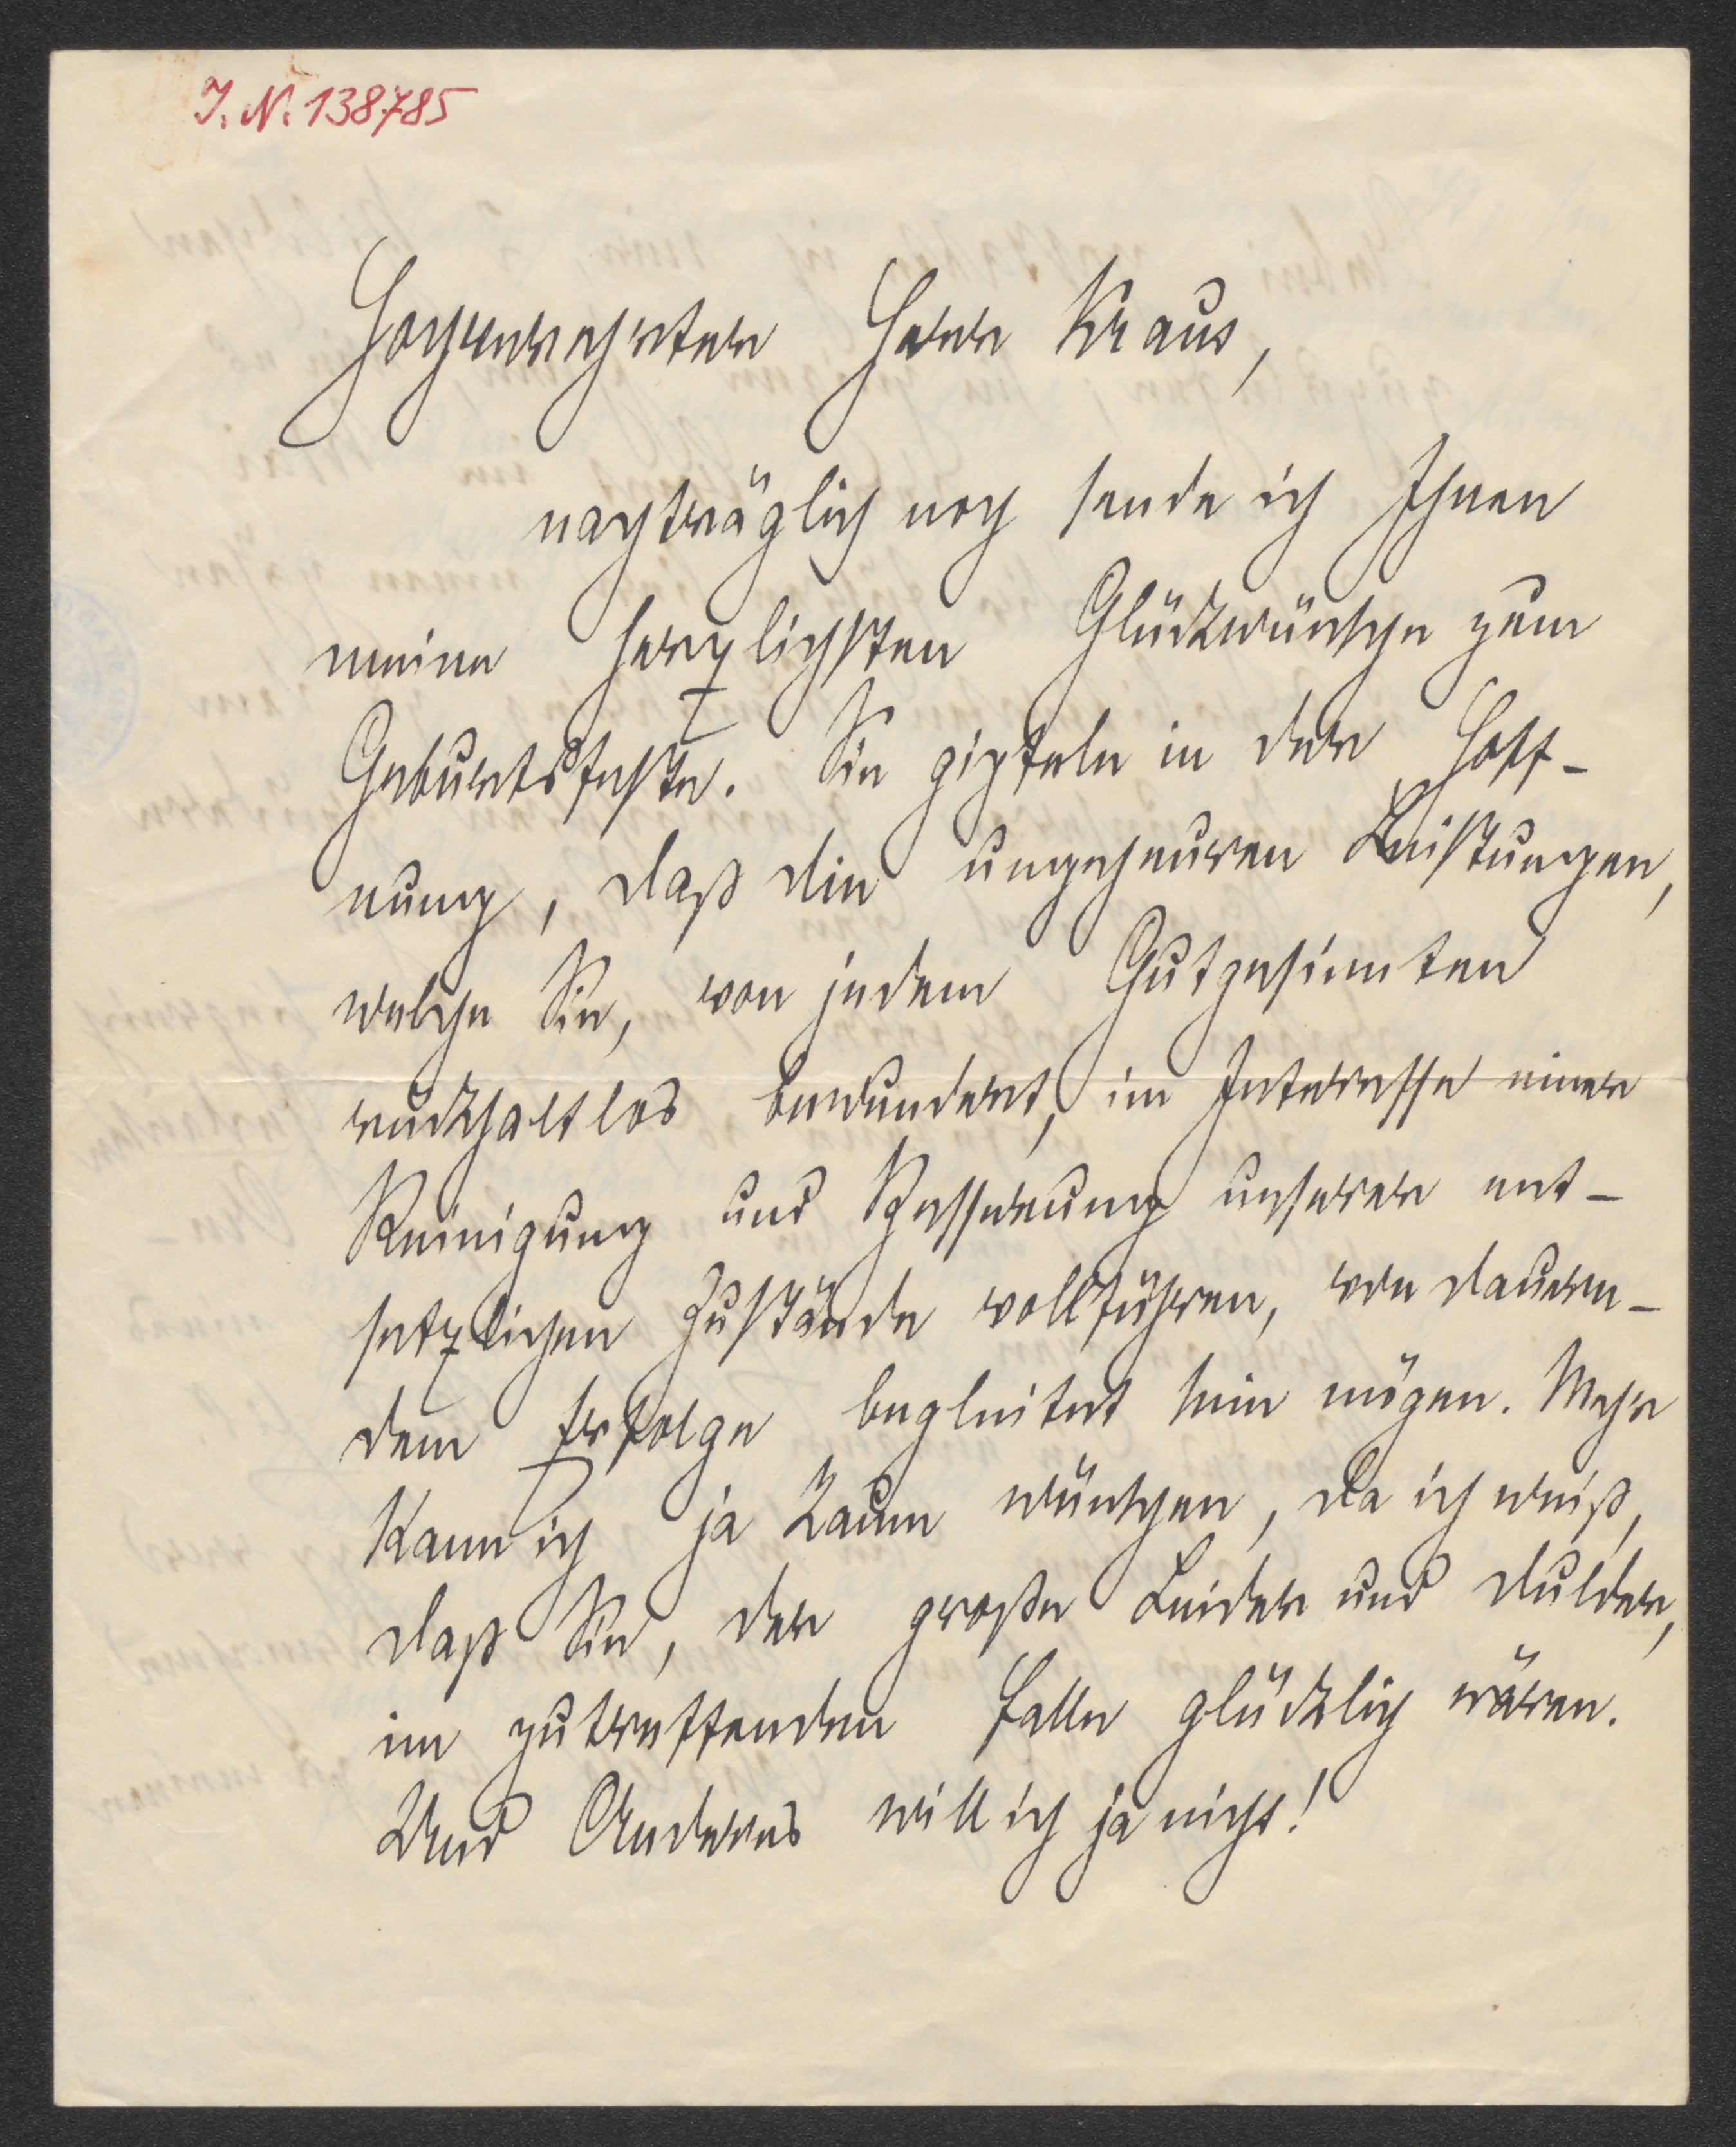 I. N. 138785
Hochverehrter Herr Kraus,
nachträglich noch sende ich Ihnen
meine herzlichsten Glückwünsche zum
Geburtsfeste. Sie gipfeln in der Hoff-
nung, daß die ungeheuren Leistungen,
welche Sie, von jedem Gutgesinnten
rückhaltlos bewundert, im Interesse einer
Reinigung und Besserung unserer ent-
setzlichen Zustände vollführen, von dauern-
dem Erfolge begleitet sein mögen. Mehr
kann ich ja kaum wünschen, da ich weiß,
daß Sie, der große Leider und Dulder,
im zutreffenden Falle glücklich wären.
Und Anderes will ich ja nicht!